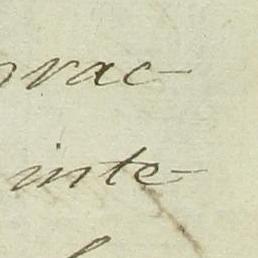 vrac-
inte-